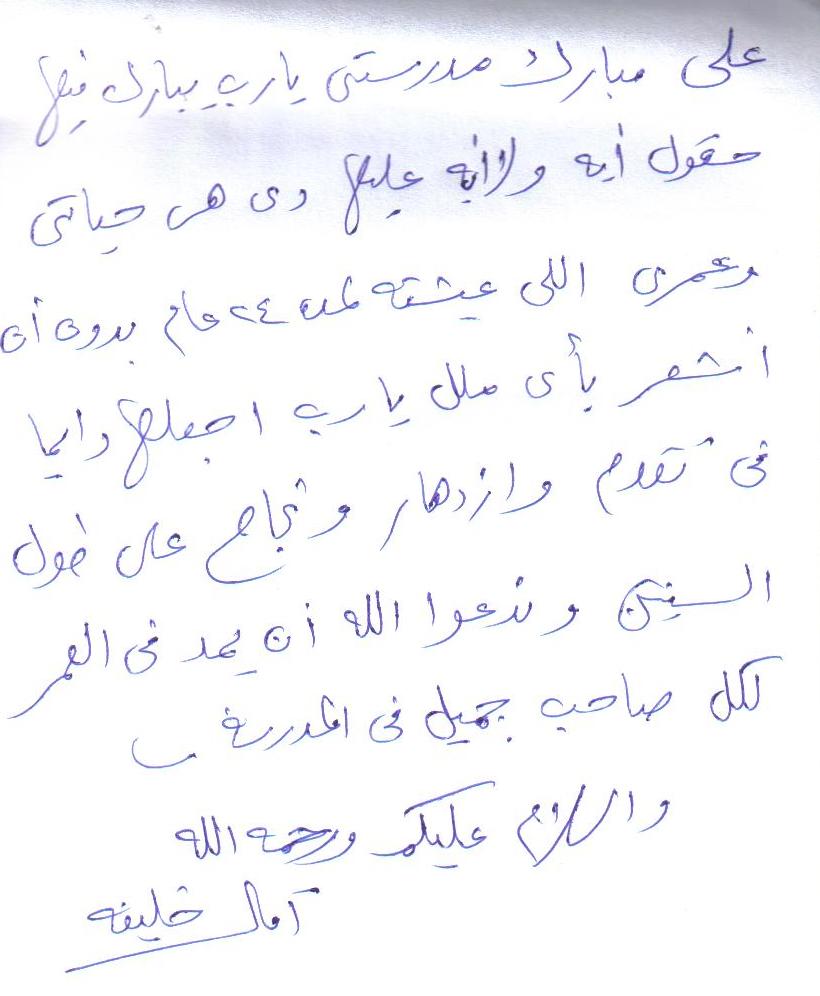 على مبارك مدرستى يارب يبارك فيها
حقول أيه ولا أيه عليها دى هى حياتى
وعمرى اللى عيشته لمدة ٢٤ عام بدون أن
أشعر بأى ملل يارب اجعلها دايما
فى تقدم وازدهار ونجاح على طول
السنين وندعوا الله أن يمد فى العمر
لكل صاحب جميل فى المدرسة
والسلام عليكم ورحمه الله
آمال خليفه